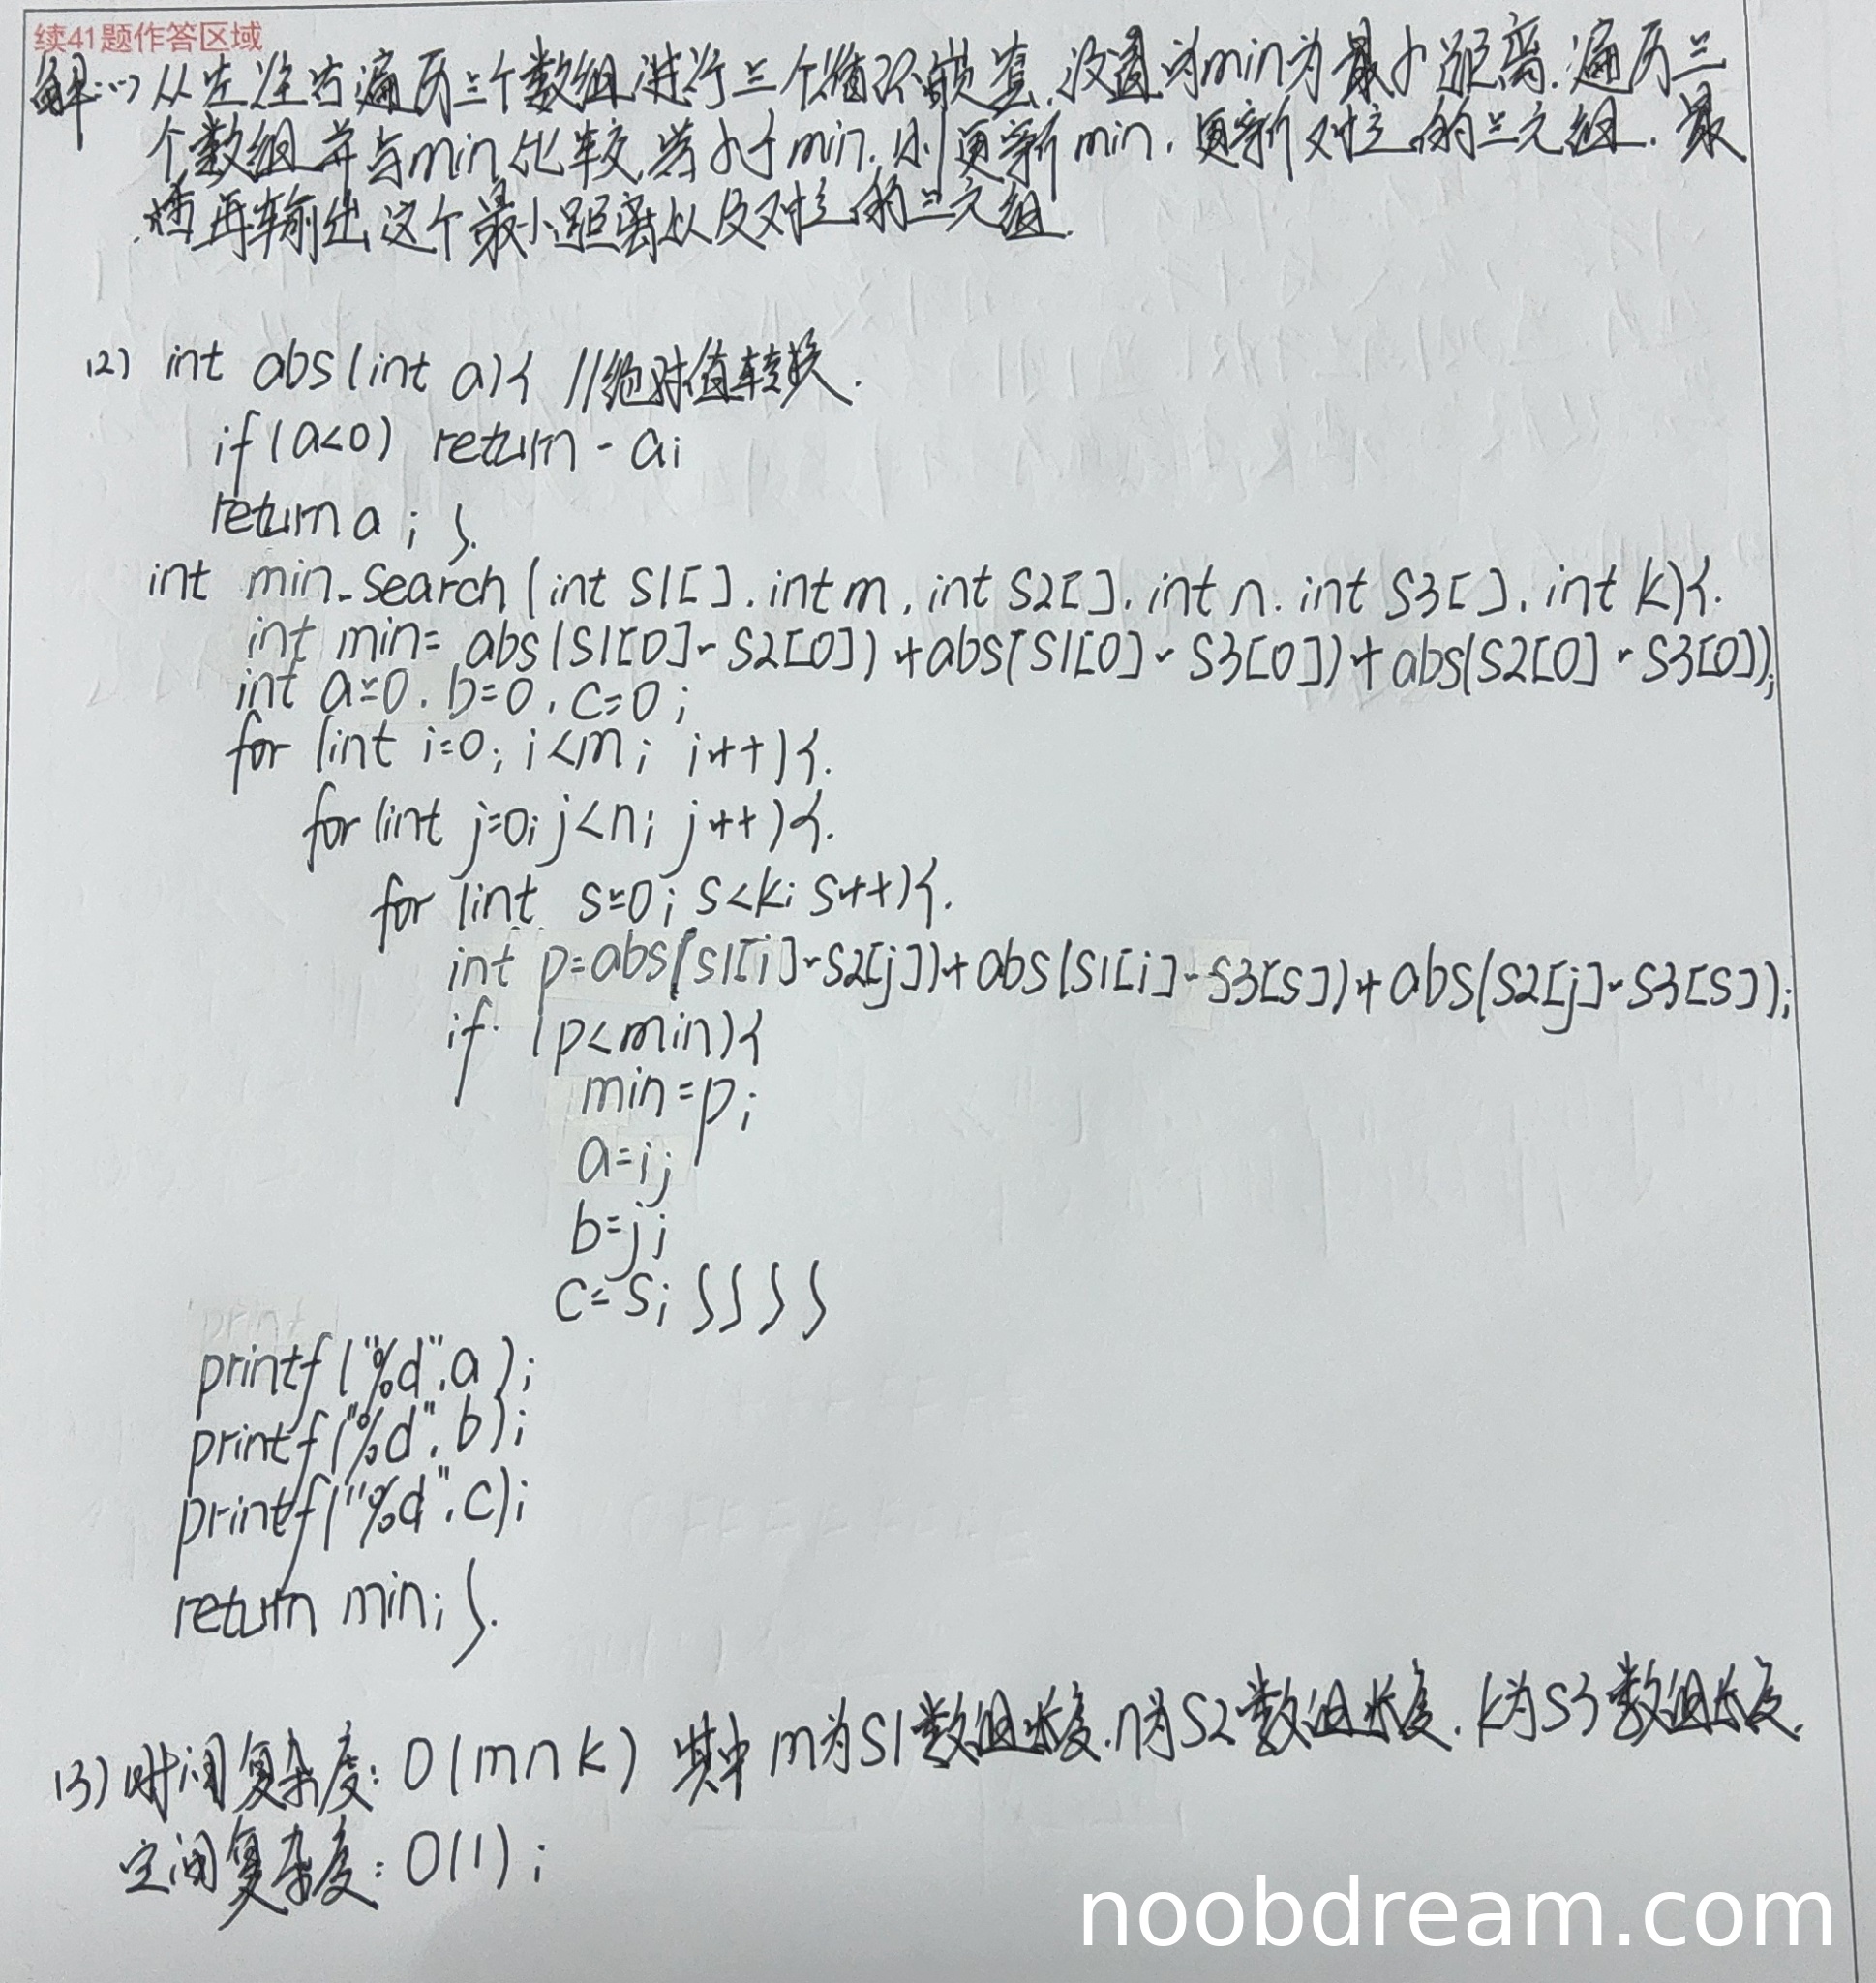 续41题作答区域
解:(1) 从左往右遍历三个数组,进行三个循环嵌套.设置的min为最小距离.遍历三
个数组并与min比较,若小于min,则更新min,更新对应的三元组.最
后再输出这个最小距离以及对应的三元组.
(2) int abs(int a){ //绝对值转换.
if(a<0) return -a;
return a; }
int min_search(int S1[], int m, int S2[], int n, int S3[], int k){
int min= abs(S1[0]-S2[0])+abs(S1[0]-S3[0])+abs(S2[0]-S3[0]);
int a=0, b=0, c=0;
for (int i=0; i<m; i++){
for(int j=0; j<n; j++){
for (int s=0; s<k; s++){
int p=abs(S1[i]-S2[j])+abs(S1[i]-S3[s])+abs(S2[j]-S3[s]);
if (p<min){
min=p;
a=i;
b=j;
c=s; }}}}
printf("%d",a);
printf("%d",b);
printf("%d",c);
return min; }
(3) 时间复杂度: O(mnk) 其中m为S1数组长度,n为S2数组长度,k为S3数组长度.
空间复杂度: O(1);
noobdream.com